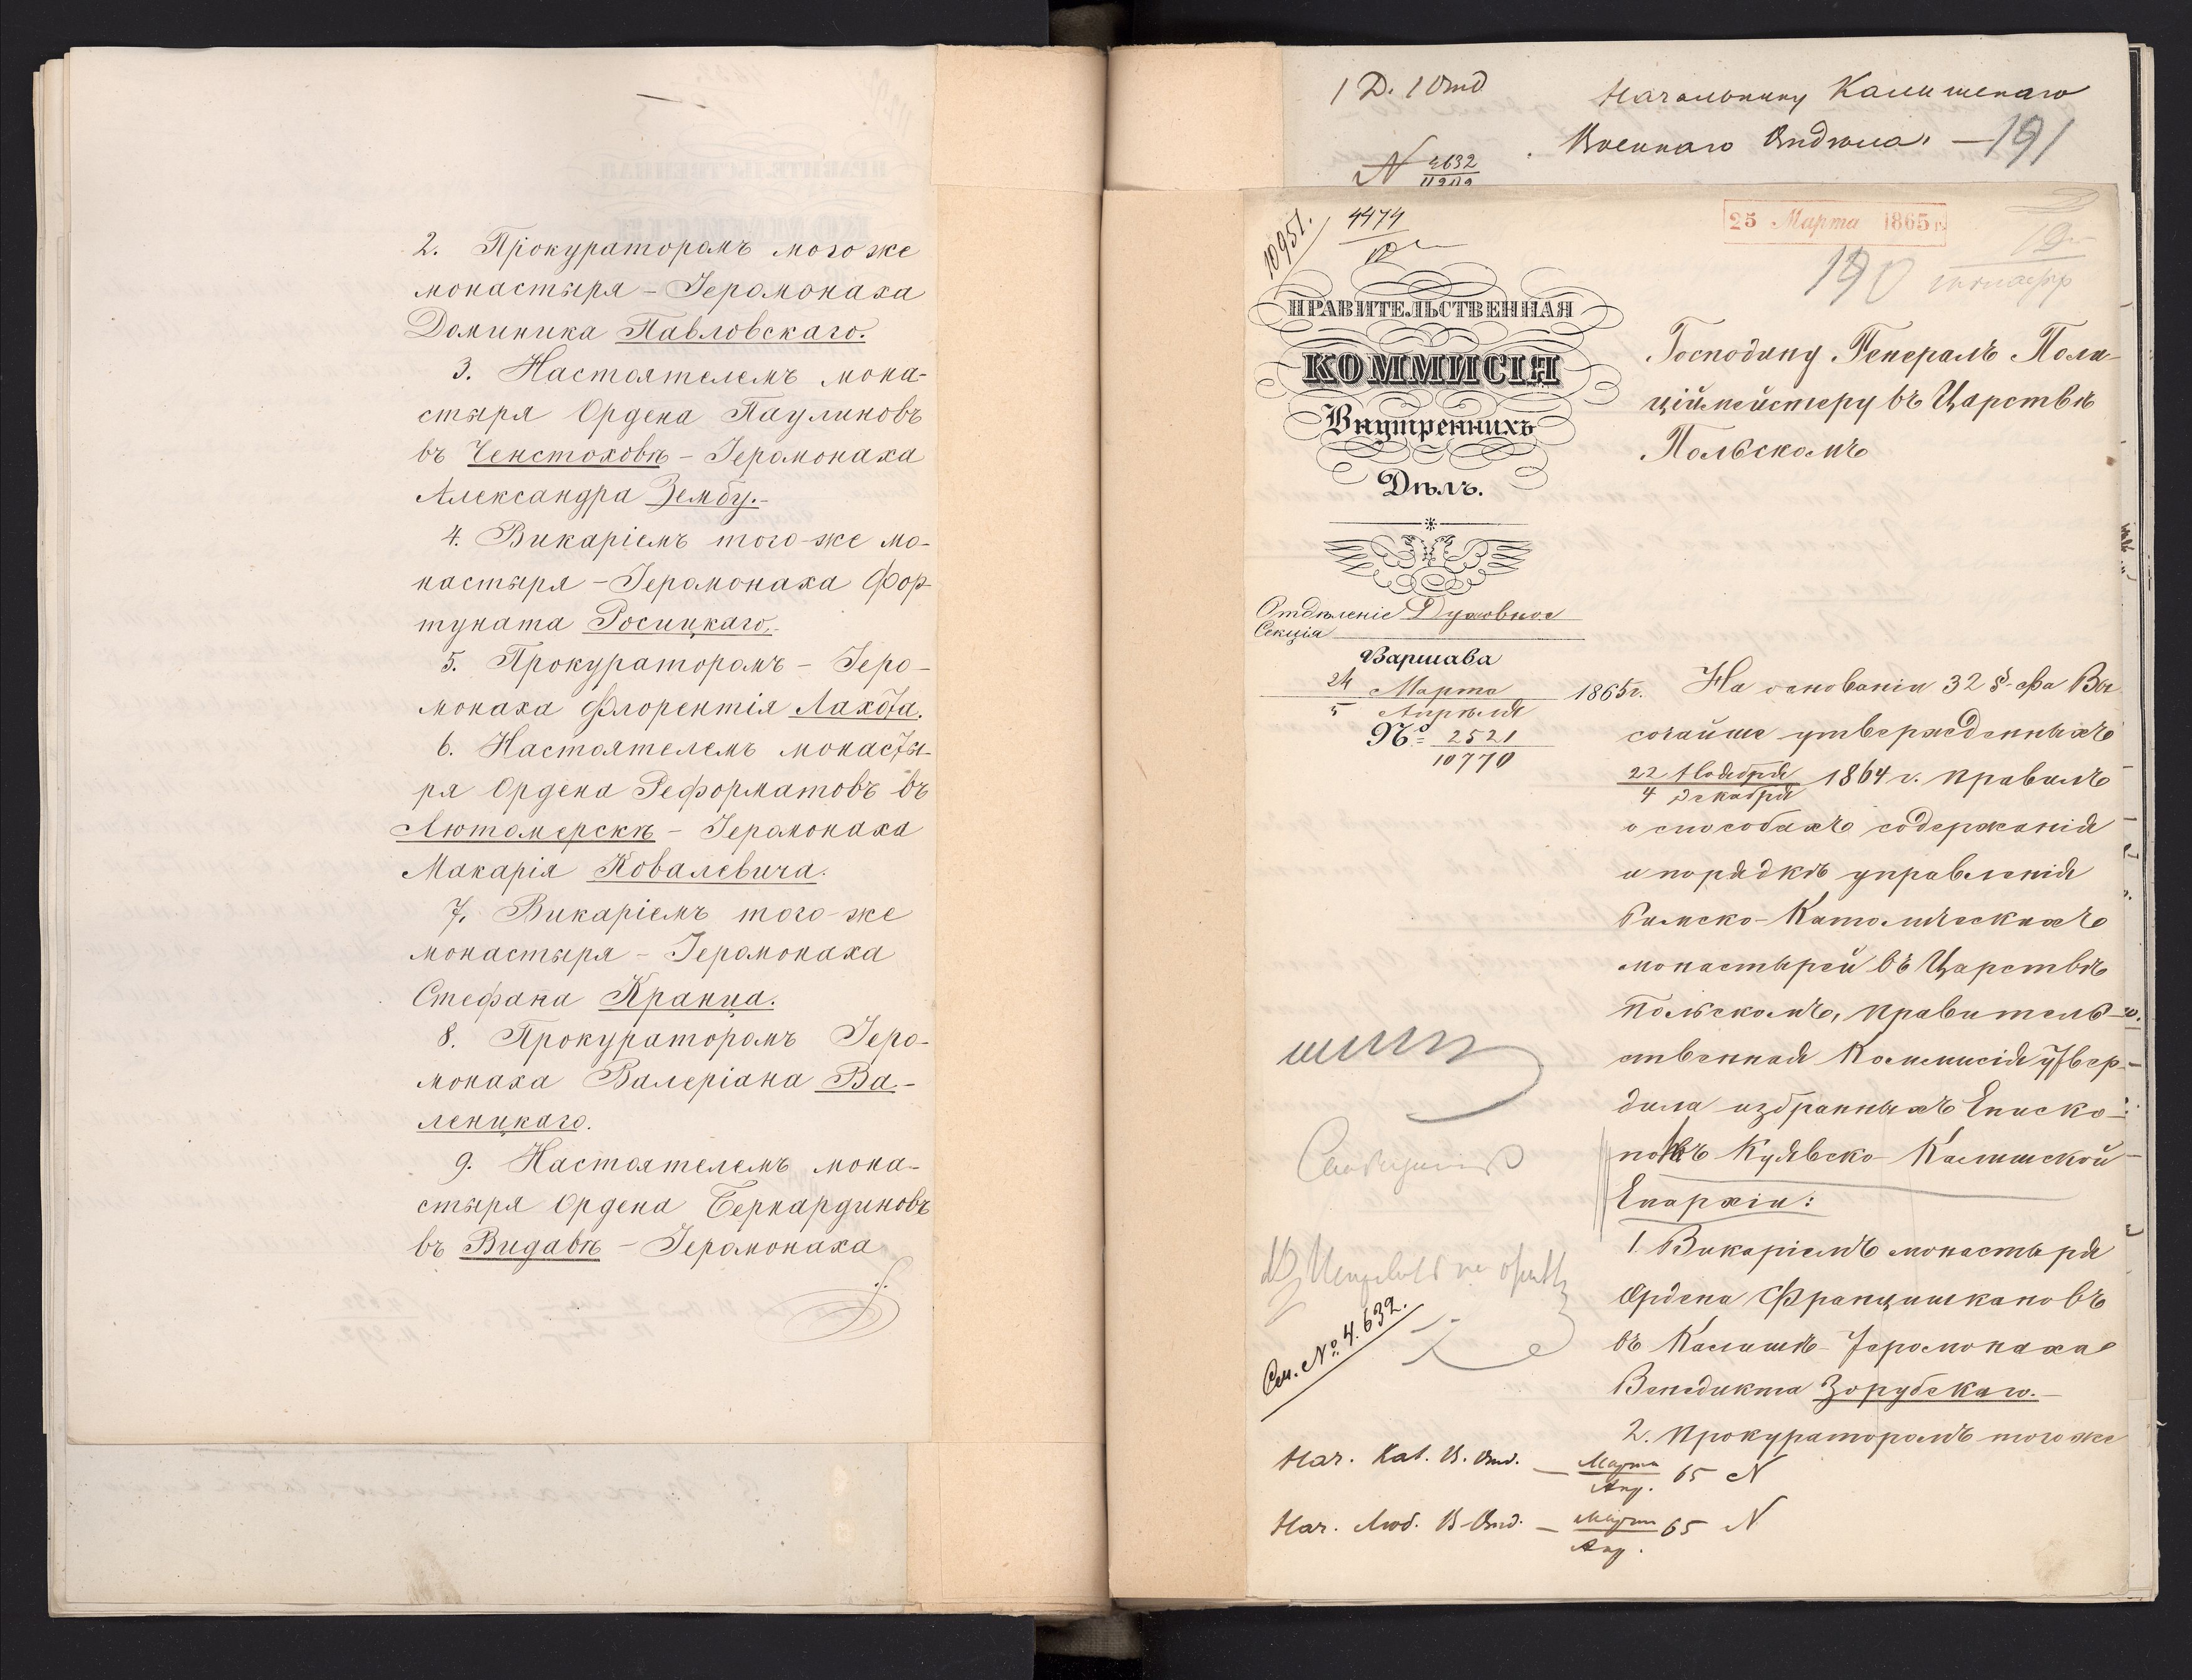 2. Прокураторомъ того же
монастыря – Іеромонаха
Доминика Павловскаго.
3. Настоятелемъ мона-
стыря Ордена Паулиновъ
въ Ченстоховѣ – Іеромонаха
Александра Зембу.-
4. Викаріемъ того-же мо-
настыря – Іеромонаха Фор-
туната Росицкаго.-
5. Прокураторомъ – Іеро-
монаха Флорентія Лахта.
6. Настоятелемъ монасты-
ря Ордена Реформатовъ въ
Лютомерскѣ – Іеромонаха
Макарія Ковалевича.
7. Викаріемъ того-же
монастыря – Іеромонаха
Стефана Кранца.
8. Прокураторомъ Іеро-
монаха Валеріана Ва-
леницкаго.
9. Настоятелемъ мона-
стыря Ордена Бернардиновъ
въ Видавѣ – Іеромонаха
1 Д. 1 Отд
Начальнику Калишскаго
Военнаго Отдѣла. – 191
N 4632
10951.
4474
25 Марта 1865 г.
190
ПРАВИТЕЛЬСТВЕННАЯ
КОММИСІЯ
Внутреннихъ
Дѣлъ.
Отдѣленіе Духовное
Секція
Варшава
24 Марта 1865 г.
5 Апрѣля
№ 2521
10770
Господину Генералъ Поли-
ційместеру въ Царствѣ
Польскомъ
На основаніи 32 §-фа Вы-
сочайше утвержденныхъ
22 Ноября
4 Декабря 1864 г. правилъ
о способахъ содержанія
и порядкѣ управленія
Римско-Католическихъ
монастырей въ Царствѣ
Польскомъ, Правитель-
ственная Коммисія утвер-
дила избранныхъ Еписко-
помъ Куявско-Калишской
Епархіи:
1. Викаріемъ монастыря
Ордена Францишкановъ
въ Калишѣ – Іеромонаха
Венедикта Зорубскаго.-
2. Прокураторомъ того же
См. № 4.632.
Нач. Кал. В. Отд. – Марта
Апр. 65 N
Нач. Люб. В. Отд. – Марта
Апр. 65 N